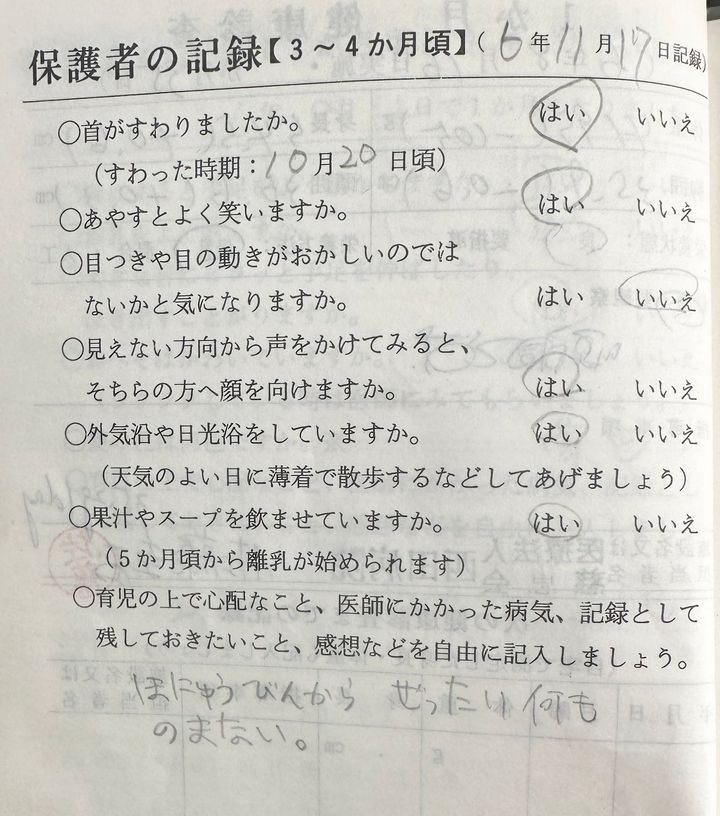 保護者の記録【3〜4か月頃】(6年11月17日記録)
○首がすわりましたか。 はい いいえ
(すわった時期：10月20日頃)
○あやすとよく笑いますか。 はい いいえ
○目つきや目の動きがおかしいのでは
ないかと気になりますか。 はい いいえ
○見えない方向から声をかけてみると、
そちらの方へ顔を向けますか。 はい いいえ
○外気浴や日光浴をしていますか。 はい いいえ
(天気のよい日に薄着で散歩するなどしてあげましょう)
○果汁やスープを飲ませていますか。 はい いいえ
(5か月頃から離乳が始められます)
○育児の上で心配なこと、医師にかかった病気、記録として
残しておきたいこと、感想などを自由に記入しましょう。
ほにゅうびんから ぜったい何も
のまない。